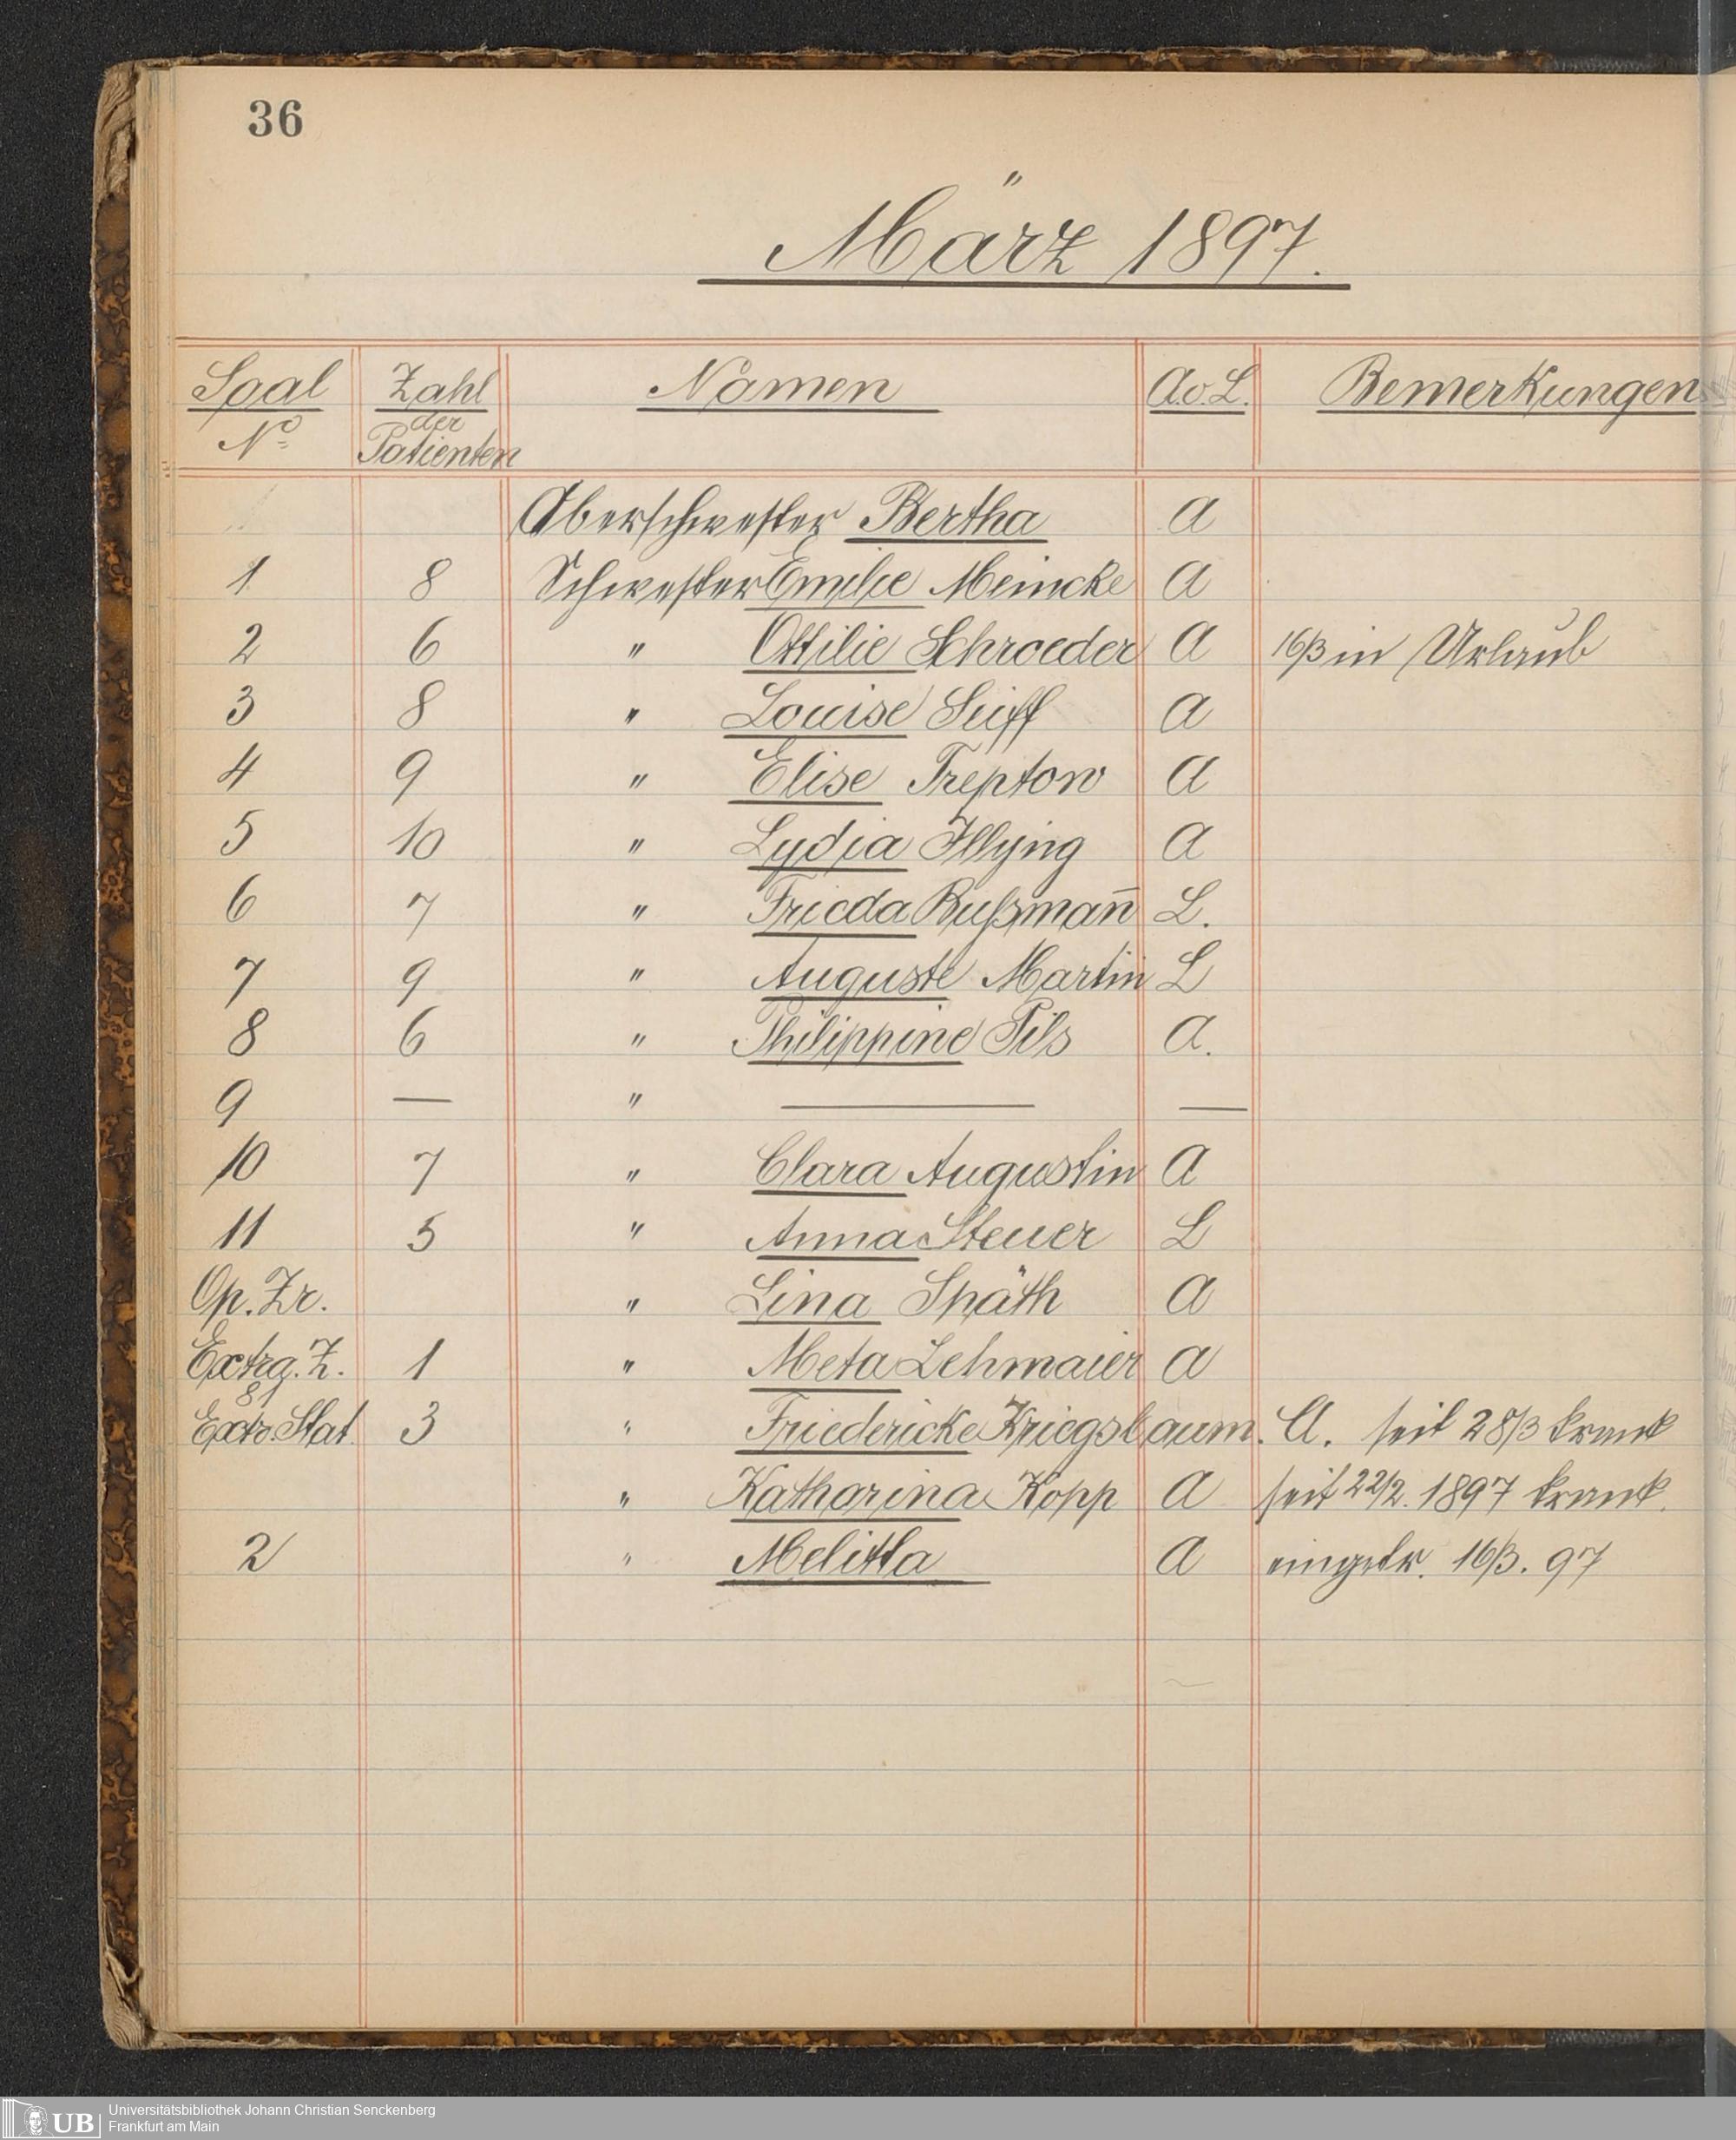 36
März 1897.
Saal Zahl Namen A.o.L. Bemerkungen
No der
Patienten
Oberschwester Bertha A
1 8 Schwester Emilie Meincke A
2 6 " Ottilie Schroeder A 16/3 in Urlaub
3 8 " Louise Seiff A
4 9 " Elise Treptow A
5 10 " Lydia Illying A
6 7 " Frieda Rußman̄ L.
7 9 " Auguste Martin L
8 6 " Philippine Pils A.
9 — " — —
10 7 " Clara Augustin A
11 5 " Anna Steuer L
Op. Zr. " Lina Späth A
Extra. Z. 1 " Meta Lehmaier A
&
Extr. Stat. 3 " Friedericke Kriegsbaum. A. seit 28/3 krank
" Katharina Kopp A seit 22/2. 1897 krank.
2 " Melitta A eingetr. 16/3. 97
UB
Universitätsbibliothek Johann Christian Senckenberg
Frankfurt am Main